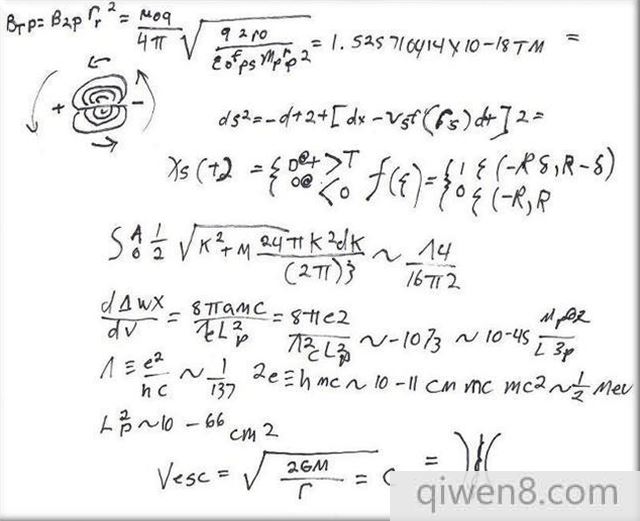 BTP = B2P Γr² = μoq/4π √(q 2 ro/εo ps Mp p 2) = 1.525710414 X 10 - 18 TM =
+ -
ds² = - d + 2 + [dx - vsf(rs) d+] 2 =
Xs(+2 = { D@+ >T 0@ <0 f(ξ) = { 1 { (-R δ, R - δ) 0 { (-R, R
S A 0 1/2 √K² + M 24πK²dK/(2π)} ~ Λ4/16π2
dΔwx/dv = 8πamc/ħL²p = 8πe2/Λ²cL²p ~ -1073 ~ 10-45 Mp/L3p
Λ ≡ e²/hc ~ 1/137 2e ≡ h mc ~ 10 - 11 cm mc mc2 ~ 1/2 Mev
L²p ~ 10 - 66 cm 2
Vesc = √2GM/r = C = )
qiwen8.com